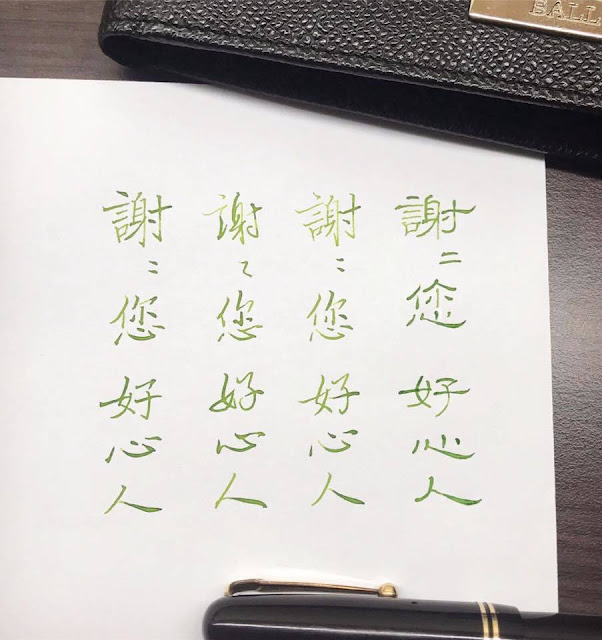 BALL
謝〻您好心人
謝〻您好心人
謝〻您好心人
謝〻您好心人